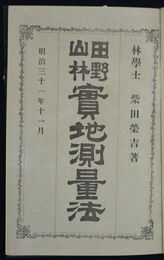 林學士 柴田榮吉著
田野山林實地測量法
明治三十一年十一月